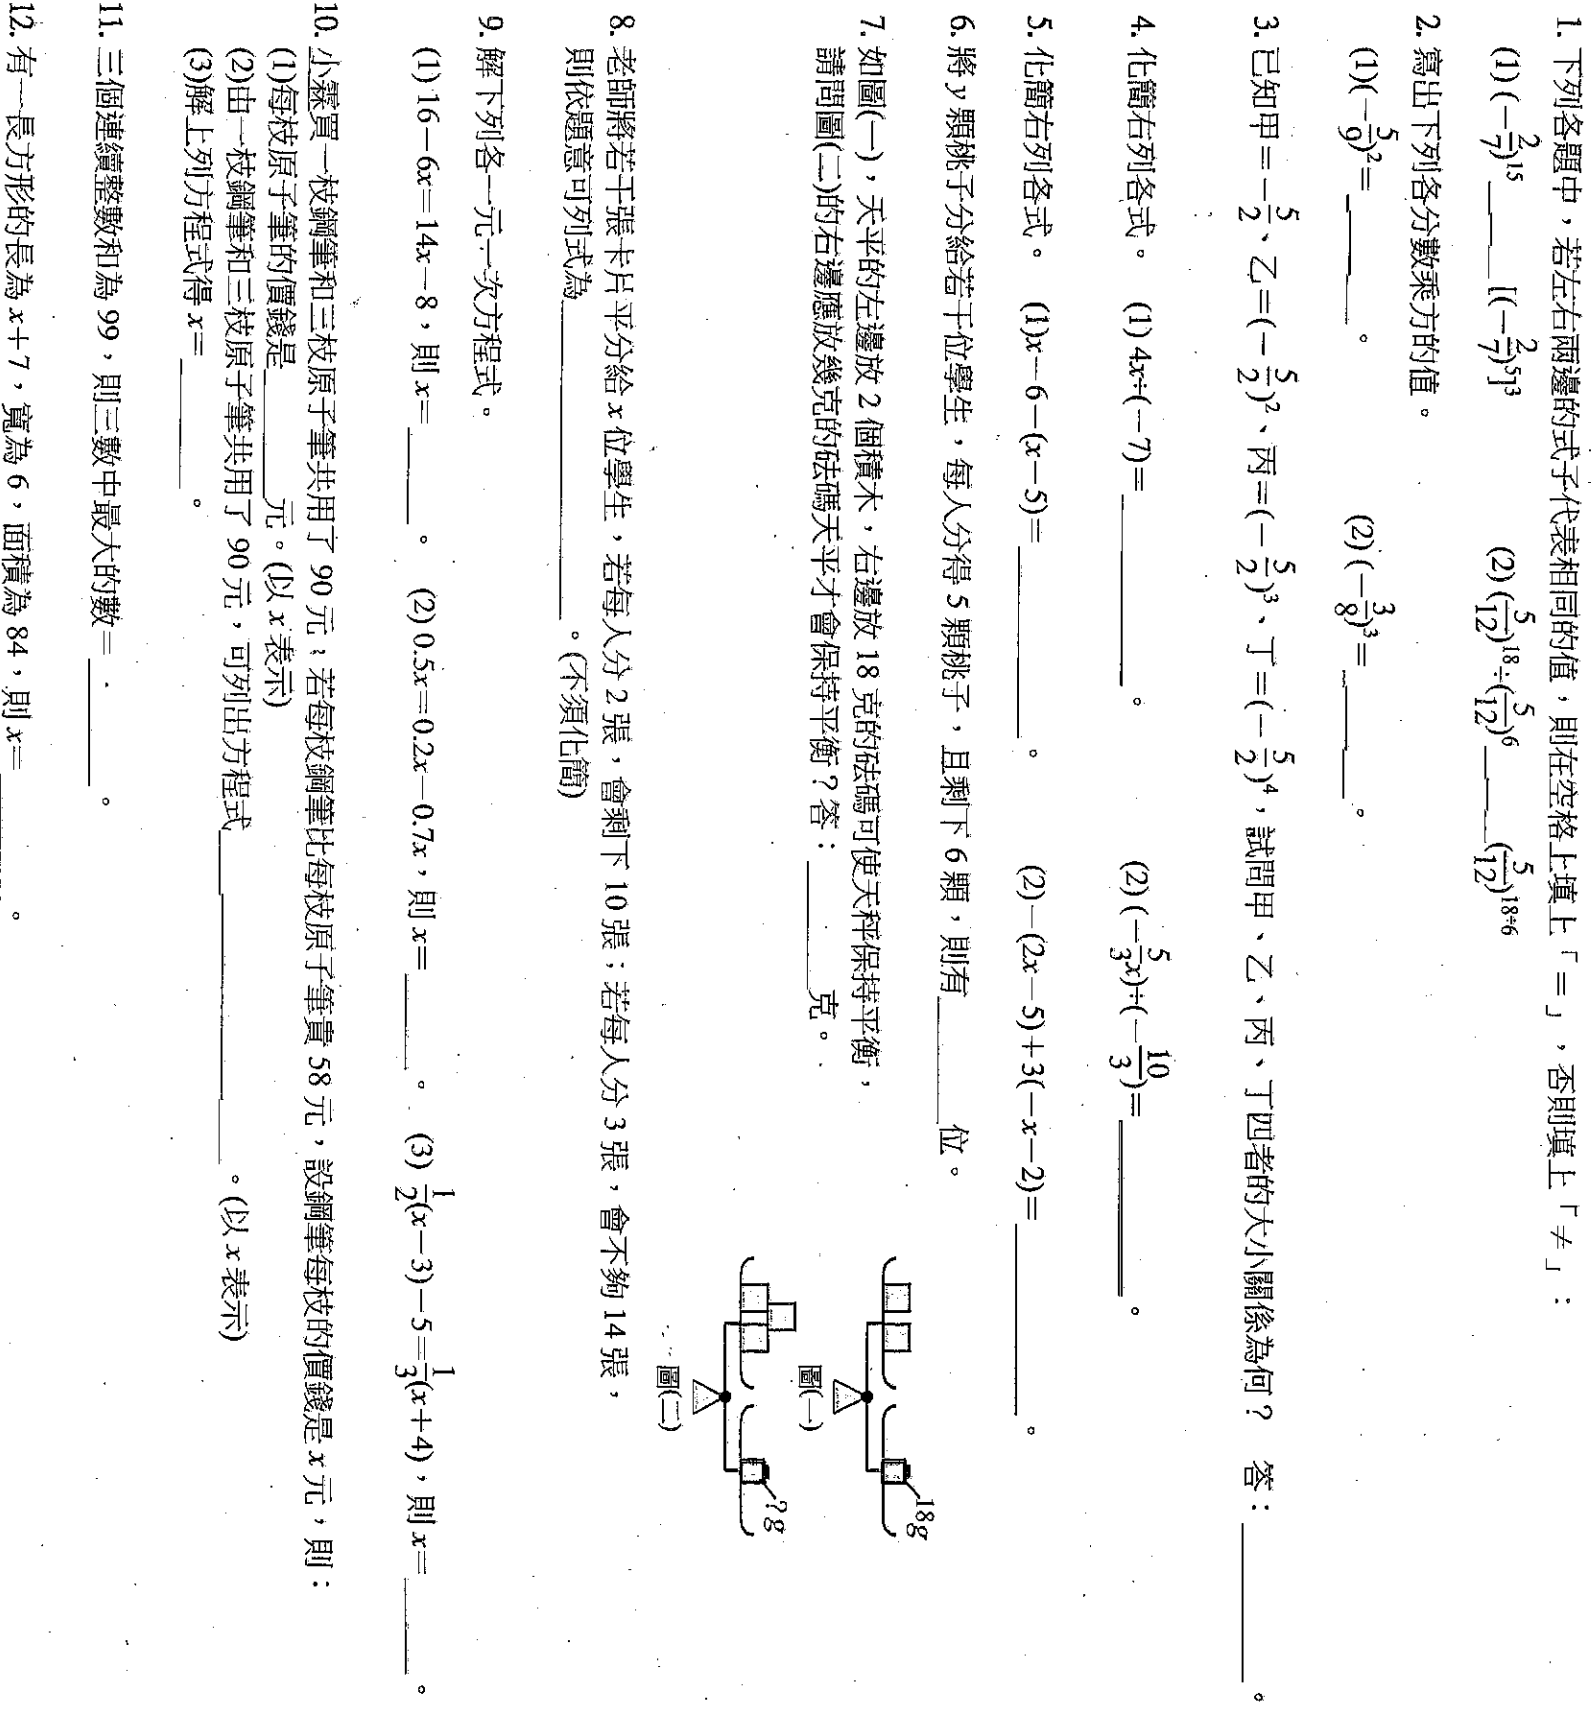 1. 下列各題中，若左右兩邊的式子代表相同的值，則在空格上填上「＝」，否則填上「≠」：
(1) (－2/7)^15 ____ [(－2/7)^5]^3　(2) (5/12)^18÷(5/12)^6 ____ (5/12)^18÷6
2. 寫出下列各分數乘方的值。
(1)(－5/9)^2＝ ____ 。　(2) (－3/8)^3＝ ____ 。
3. 已知甲＝－5/2、乙＝(－5/2)^2、丙＝(－5/2)^3、丁＝(－5/2)^4，試問甲、乙、丙、丁四者的大小關係為何？　答：____ 。
4. 化簡右列各式。　(1) 4x÷(－7)＝ ____ 。　(2) (－5/3x)÷(－10/3)＝ ____ 。
5. 化簡右列各式。　(1)x－6－(x－5)＝ ____ 。　(2)－(2x－5)＋3(－x－2)＝ ____ 。
6. 將 y 顆桃子分給若干位學生，每人分得 5 顆桃子，且剩下 6 顆，則有 ____ 位。
7. 如圖(一)，天平的左邊放 2 個積木，右邊放 18 克的砝碼可使天秤保持平衡，
請問圖(二)的右邊應放幾克的砝碼天平才會保持平衡？答：____ 克。
18g
圖(一)
?g
圖(二)
8. 老師將若干張卡片平分給 x 位學生，若每人分 2 張，會剩下 10 張；若每人分 3 張，會不夠 14 張，
則依題意可列式為 ____ 。(不須化簡)
9. 解下列各一元一次方程式。
(1) 16－6x＝14x－8，則 x＝ ____ 。　(2) 0.5x＝0.2x－0.7x，則 x＝ ____ 。　(3) 1/2(x－3)－5＝1/3(x＋4)，則 x＝ ____ 。
10. 小霖買一枝鋼筆和三枝原子筆共用了 90 元；若每枝鋼筆比每枝原子筆貴 58 元，設鋼筆每枝的價錢是 x 元，則：
(1)每枝原子筆的價錢是 ____ 元。(以 x 表示)
(2)由一枝鋼筆和三枝原子筆共用了 90 元，可列出方程式 ____ 。(以 x 表示)
(3)解上列方程式得 x＝ ____ 。
11. 三個連續整數和為 99，則三數中最大的數＝ ____ 。
12. 有一長方形的長為 x＋7，寬為 6，面積為 84，則 x＝ ____ 。